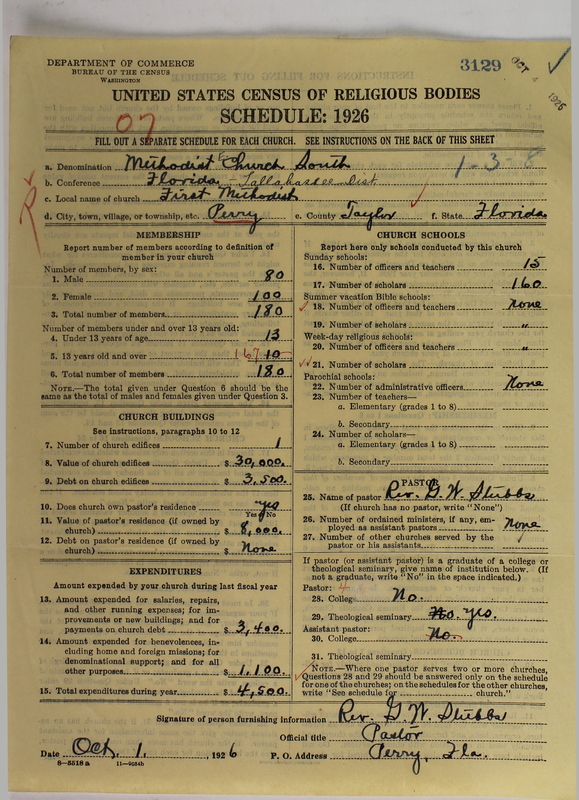 DEPARTMENT OF COMMERCE
BUREAU OF THE CENSUS
WASHINGTON
3129
OCT 4 1926
UNITED STATES CENSUS OF RELIGIOUS BODIES
SCHEDULE: 1926
07
FILL OUT A SEPARATE SCHEDULE FOR EACH CHURCH. SEE INSTRUCTIONS ON THE BACK OF THIS SHEET
a. Denomination Methodist E Church South 1-3-8
b. Conference Florida - Tallahassee Dist.
c. Local name of church First Methodist
d. City, town, village, or township, etc. Perry e. County Taylor f. State Florida
MEMBERSHIP
Report number of members according to definition of
member in your church
Number of members, by sex:
1. Male 80
2. Female 100
3. Total number of members 180
Number of members under and over 13 years old:
4. Under 13 years of age 13
5. 13 years old and over 167 10
6. Total number of members 180
NOTE.—The total given under Question 6 should be
same as the total of males and females given under Question 3.
CHURCH BUILDINGS
See instructions, paragraphs 10 to 12
7. Number of church edifices 1
8. Value of church edifices $ 30,000.
9. Debt on church edifices $ 3,500.
10. Does church own pastor's residence yes
Yes or No
11. Value of pastor's residence (if owned by
church) $ 8,000.
12. Debt on pastor's residence (if owned by
church) $ None
EXPENDITURES
Amount expended by your church during last fiscal year
13. Amount expended for salaries, repairs,
and other running expenses; for im-
provements or new buildings; and for
payments on church debt $ 3,400.
14. Amount expended for benevolences, in-
cluding home and foreign missions; for
denominational support; and for all
other purposes $ 1,100.
15. Total expenditures during year $ 4,500.
CHURCH SCHOOLS
Report here only schools conducted by this church
Sunday schools:
16. Number of officers and teachers 15
17. Number of scholars 160
Summer vacation Bible schools:
18. Number of officers and teachers none
19. Number of scholars "
Week-day religious schools:
20. Number of officers and teachers "
21. Number of scholars
Parochial schools:
22. Number of administrative officers None
23. Number of teachers—
a. Elementary (grades 1 to 8)
b. Secondary
24. Number of scholars—
a. Elementary (grades 1 to 8)
b. Secondary
PASTOR
25. Name of pastor Rev. G. W. Stubbs
(If church has no pastor, write "None")
26. Number of ordained ministers, if any, em-
ployed as assistant pastors none
27. Number of other churches served by the
pastor or his assistants
If pastor (or assistant pastor) is a graduate of a college or
theological seminary, give name of institution below. (If
not a graduate, write "No" in the space indicated.)
Pastor: 4
28. College No.
29. Theological seminary No. yes.
Assistant pastor:
30. College No.
31. Theological seminary
NOTE.—Where one pastor serves two or more churches,
Questions 28 and 29 should be answered only on the schedule
for one of the churches; on the schedules for the other churches,
write "See schedule for church."
Signature of person furnishing information Rev. G. W. Stubbs
Official title Pastor
Date Oct. 1, 1926 P. O. Address Perry, Fla.
8—5518 a 11—9024b